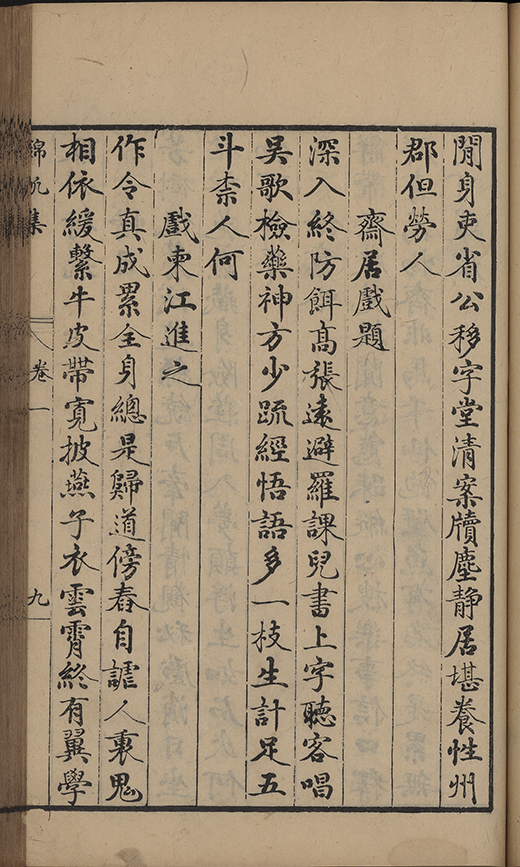 閒身吏省公移字堂清案牘塵静居堪養性州
郡但勞人
齋居戲題
深入終防餌高張遠避羅課兒書上字聽客唱
吳歌檢藥神方少疏經悟語多一枝生計足五
斗柰人何
戲柬江進之
作令真成累全身總是歸道傍舂自謔人裏鬼
相依緩繫牛皮帶寛披燕子衣雲霄終有翼學
錦帆集
卷一
九